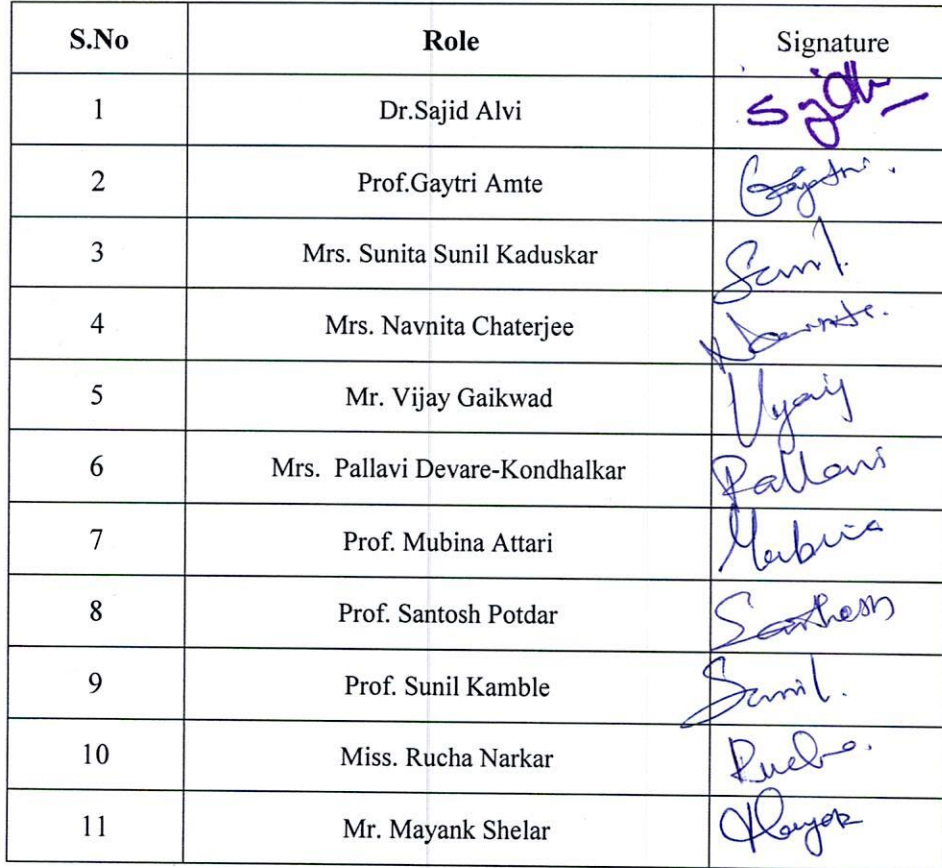 S.No Role Signature
1 Dr.Sajid Alvi
2 Prof.Gaytri Amte Gaytri.
3 Mrs. Sunita Sunil Kaduskar Sunil.
4 Mrs. Navnita Chaterjee
5 Mr. Vijay Gaikwad
6 Mrs. Pallavi Devare-Kondhalkar Pallavi
7 Prof. Mubina Attari Mubina
8 Prof. Santosh Potdar
9 Prof. Sunil Kamble Sunil.
10 Miss. Rucha Narkar Rucha.
11 Mr. Mayank Shelar